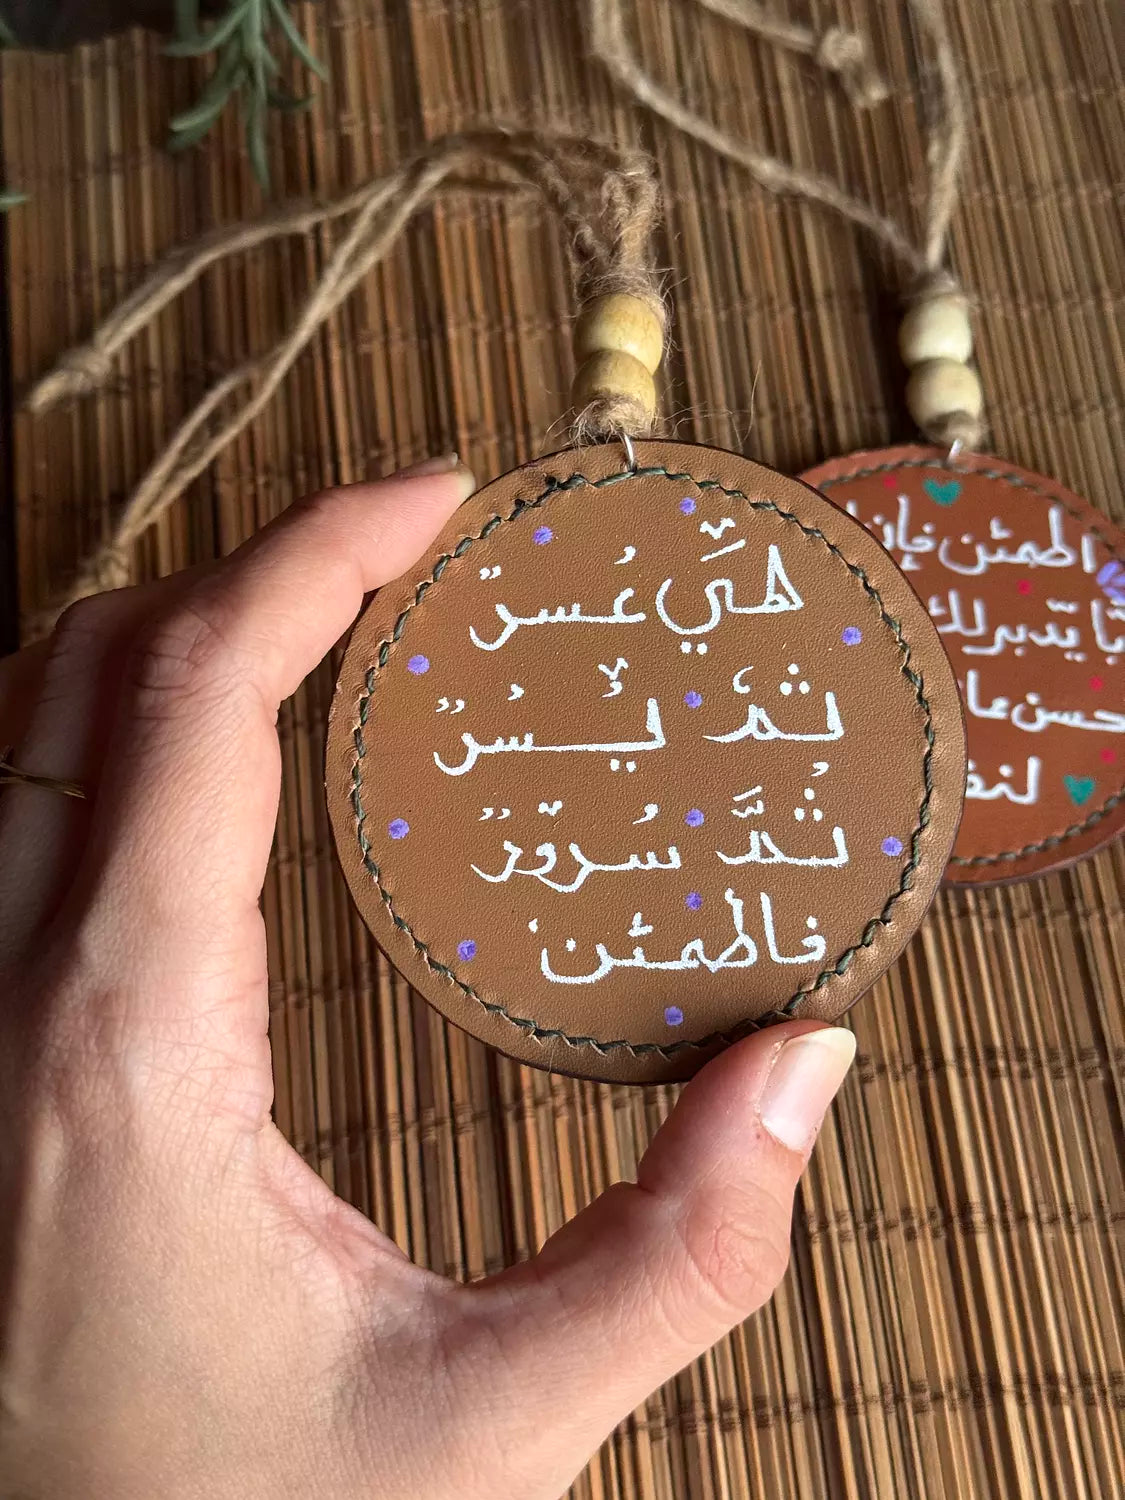 هيَّ عُسرٌ
ثمَ يْسُرٌ
ثُمَّ سُرورٌ
فاطمئن
اطمئن فإن
بًا يدّبر لك
حسن مما
لنف